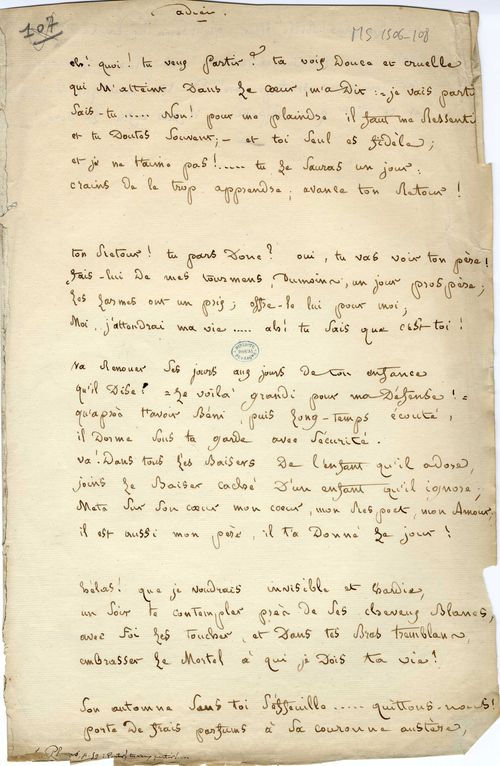 adieu.
107
MS 1506-108
eh! quoi! tu veux partir? ta voix Douce et cruelle
qui M'atteint Dans Le cœur, m'a Dit: = je vais partir
Sais-tu ..... Non! pour me plaindre il faut me Ressentir
et tu Doutes Souvent; — et toi Seul es fidèle;
et je ne t'aime pas!..... tu Le Sauras un jour:
crains de Le trop apprendre; avance ton Retour!
ton Retour! tu pars Donc? oui, tu vas voir ton père!
fais-lui De mes tourmens, Dumoins, un jour prospère;
Les Larmes ont un prix; offre-le lui pour moi;
Moi, j'attendrai ma vie ..... ah! tu Sais que c'est toi!
Va Renouer Ses jours aux jours de ton enfance
qu'il Dise! = Le voilà grandi pour ma Défense! =
qu'après t'avoir Béni, puis Long-temps écouté,
il Dorme Sous ta garde avec Sécurité.
va! Dans tous Les Baisers De l'enfant qu'il adore,
joins Le Baiser caché D'un enfant qu'il ignore;
Mets Sur Son cœur mon cœur, mon Respect, mon Amour;
il est aussi mon père, il t'a Donné Le jour!
hélas! que je voudrais invisible et hardie,
un Soir te contempler près de Ses cheveux Blancs,
avec toi Les toucher, et Dans tes Bras tremblans,
embrasser Le Mortel à qui je Dois ta vie!
Son automne Sans toi S'effeuille ..... quittons-nous!
porte De frais parfums à Sa couronne austère,